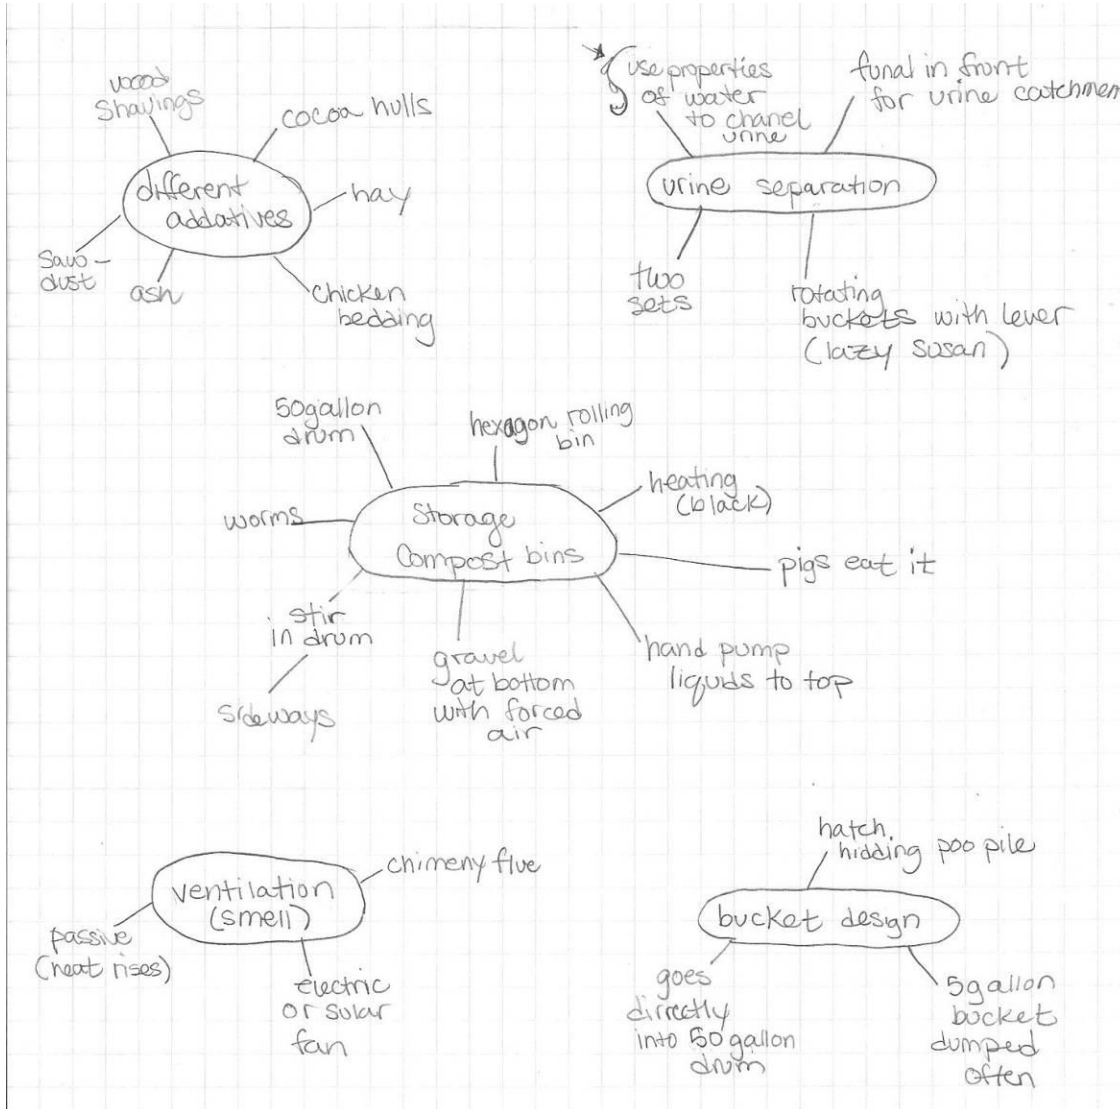 different
addatives
wood
Shavings
cocoa hulls
hay
chicken
bedding
ash
Saw-
dust
urine separation
use properties
of water
to chanel
urine
funal in front
for urine catchmen
two
sets
rotating
buckets with lever
(lazy susan)
Storage
Compost bins
50gallon
drum
hexagon rolling
bin
heating
(black)
pigs eat it
hand pump
liquids to top
gravel
at bottom
with forced
air
stir
in drum
sideways
worms
ventilation
(smell)
chimeny flue
passive
(heat rises)
electric
or solar
fan
bucket design
hatch
hidding poo pile
goes
dirrectly
into 50 gallon
drum
5gallon
bucket
dumped
often